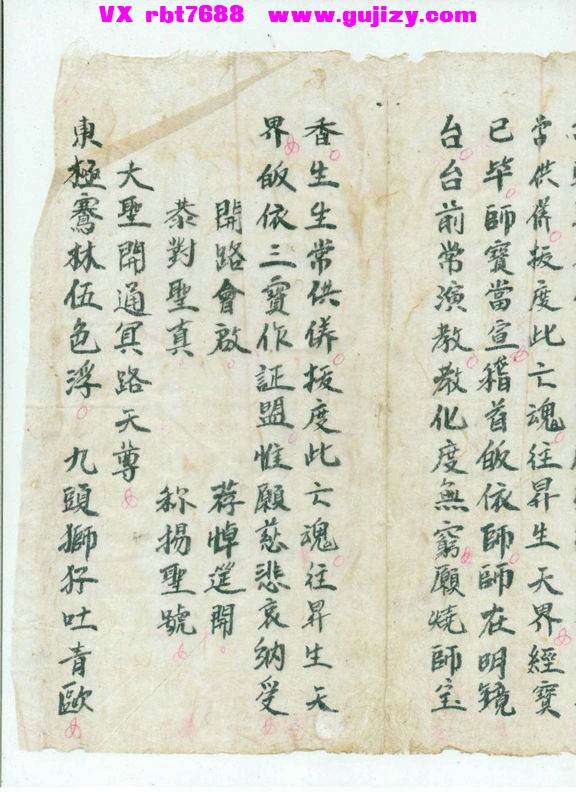 VX rbt7688 www.gujizy.com
常供養扳度此亡魂往昇生天界經寳
已毕師寳當宣稽首皈依師師在明镜
台台前常演教教化度無窮願燒師宝
香生生常供養扳度此亡魂往昇生天
界皈依三寳作証盟惟願慈悲哀納受
開路會啟 荐悼筵開
恭對聖真 称揚聖號
大聖開通冥路天尊
東極騫林伍色浮 九頭獅吐青歐